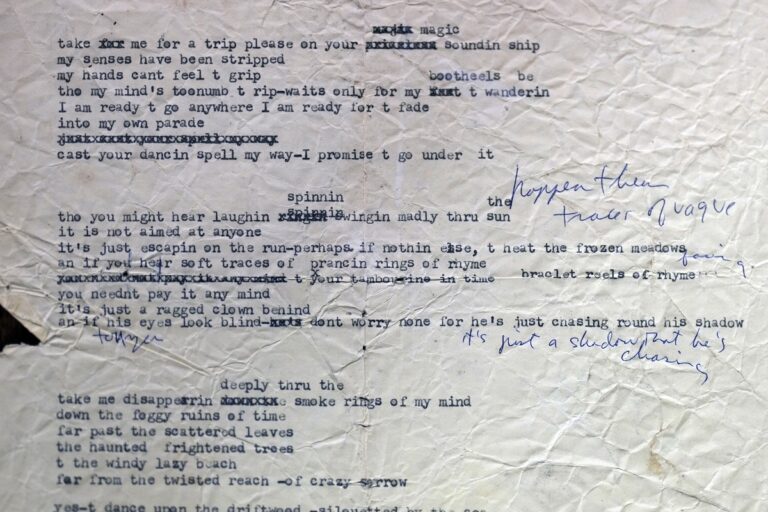 magic
take me for a trip please on your soundin ship
my senses have been stripped
my hands cant feel t grip bootheels be
tho my mind's toonumb t rip-waits only for my t wanderin
I am ready t go anywhere I am ready for t fade
into my own parade
cast your dancin spell my way-I promise t go under it
spinnin the happen then
spinnin
tho you might hear laughin swingin madly thru sun traces of vague
it is not aimed at anyone
it's just escapin on the run-perhaps if nothin else, t heat the frozen meadows
an if you hear soft traces of prancin rings of rhyme
t your tambourine in time braclet reels of rhyme
you neednt pay it any mind
it's just a ragged clown behind
an if his eyes look blind- dont worry none for he's just chasing round his shadow
it's just a shadow that he's
chasing
deeply thru the
take me disapperrin smoke rings of my mind
down the foggy ruins of time
far past the scattered leaves
the haunted frightened trees
t the windy lazy beach
far from the twisted reach -of crazy sorrow
yes-t dance upon the driftwood -silouetted by the